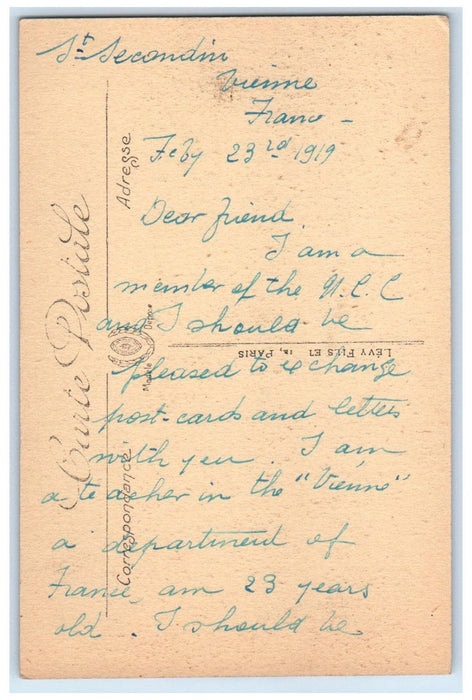 St Secondin
Vienne
France -
Feby 23rd 1919
Dear friend
I am a
member of the N.C.C
and I should be
pleased to exchange
post-cards and letters
with you. I am
a teacher in the "Vienne"
a department of
France, am 23 years
old. I should be
Carte Postale
Adresse
Correspondance
LÉVY FILS ET PARIS
Modèle Déposé